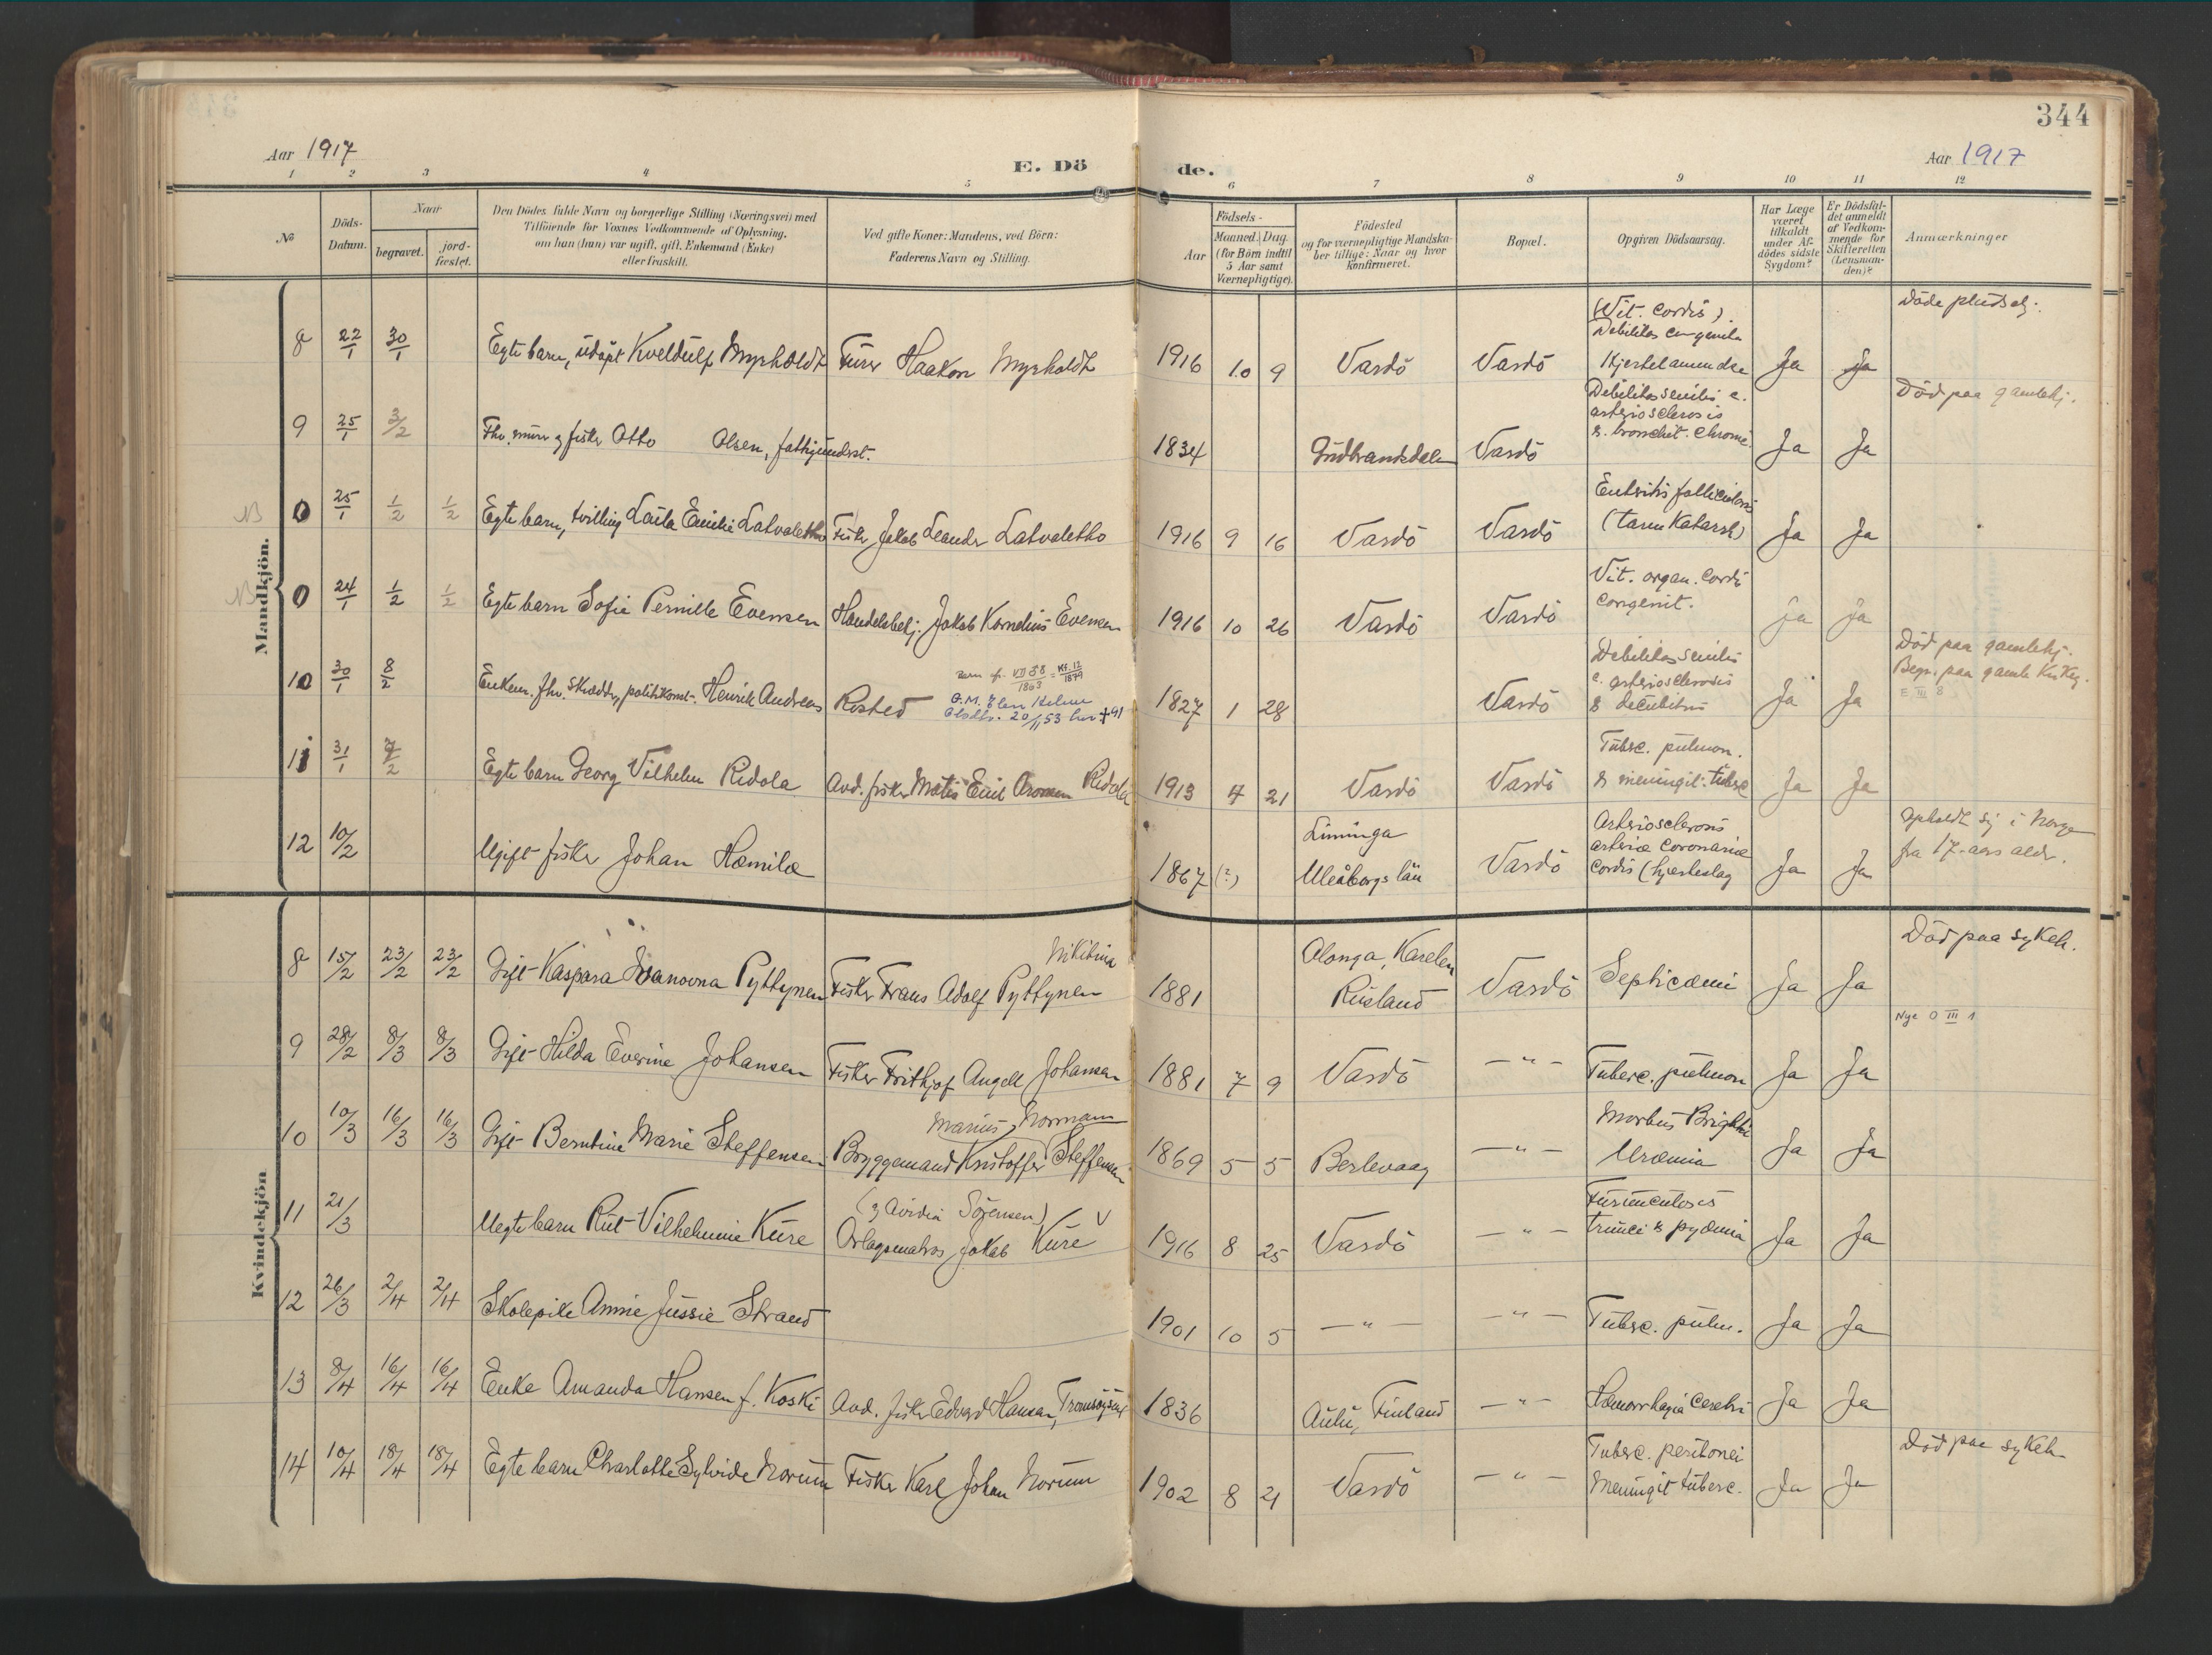 344
Aar 1917
E. Dö
de.
Aar 1917
1 2 3 4 5 6 7 8 9 10 11 12
No
Döds-Datum.
Naar
begravet.
jord-fæstet.
Den Dödes fulde Navn og borgerlige Stilling (Næringsvei) med
Tilföiende for Voxnes Vedkommende af Oplysning,
om han (hun) var ugift, gift, Enkemand (Enke)
eller fraskilt.
Ved gifte Koner: Mandens, ved Börn:
Faderens Navn og Stilling.
Födsels-
Aar
Maaned. Dag.
(for Börn indtil
5 Aar samt
Værnepligtige).
Födested
og for værnepligtige Mandska-
ber tillige: Naar og hvor
konfirmeret.
Bopæl.
Opgiven Dödsaarsag.
Har Læge
været
tilkaldt
under Af-
dödes sidste
Sygdom?
Er Dödsfal-
det anmeldt
af Vedkom-
mende for
Skifteretten
(Lensman-
den)?
Anmærkninger
Mandkjön.
8 22/1 30/1 Egte barn, udöpt Kveldulf Myrholdt Furer Haakon Myrholdt 1916 10 9 Vardö Vardö (Vit. cordis). Debilitas congenita Hjertelammelse Ja Ja Döde pludselig.
9 25/1 3/2 Fhv. murer og fisker Otto Olsen, fattigunderst. 1834 Gudbrandsdalen Vardö Debilitas senilis c. arteriosclerosis & bronchit. chronic. Ja Ja Död paa gamlehj.
NB 0 25/1 1/2 1/2 Egte barn, tvilling Laila Emilie Latvaletho Fisker Jakob Leander Latvaletho 1916 9 16 Vardö Vardö Enteritis follicularis (tarmkatarrh) Ja Ja
NB 0 24/1 1/2 1/2 Egte barn Sofie Pernille Evensen Handelsbetj. Jakob Kornelius Evensen 1916 10 26 Vardö Vardö Vit. organ. cordis congenit. Ja Ja
10 30/1 8/2 Enkem. fhv. skrædder, politikonst. Henrik Andreas Rosted 1827 1 28 Vardö Debilitas senilis c. arteriosclerosis & decubitus Ja Ja Död paa gamlehj.
G.M. Elen Helene
Olsdtr. 20/11 53 her + 91
Begr. paa gamle Kirkeg.
E III 8
11 31/1 7/2 Egte barn Georg Vilhelm Ridola Avd. fisker Matis Emil Aronsen Ridola 1913 4 21 Vardö Vardö Tuberc. pulmon. & meningit. tuberc. Ja Ja
12 10/2 Ugift fisker Johan Hæmilæ 1867 (?) Liminga Uleåborgs län Vardö Arteriosclerosis arteriæ coronariæ cordis (hjerteslag Ja Ja Opholdt sig i Norge fra 17-aars alder.
Kvindekjön
8 15/2 23/2 23/2 Gift Kaspara Ivanovna Pyttynen Nikitina Fisker Frans Adolf Pyttynen 1881 Alonga, Karelen Rusland Vardö Septicæmi Ja Ja Död paa sykeh.
9 28/2 8/3 8/3 Gift Hilda Everine Johansen Fisker Frithjof Angell Johansen 1881 7 9 Vardö — " — Tuberc. pulmon Ja Ja Nye O III 1
10 10/3 16/3 16/3 Gift Berntine Marie Steffensen Bryggemand Kristoffer Marius Normann Steffensen 1869 5 5 Berlevaag — " — Morbus Brightii Uræmia Ja Ja
11 21/3 Uegte barn Rut Vilhelmine Kure (g Avidia Sörensen) Orlogsmatros Jakob Kure V 1916 8 25 Vardö — " — Furunculosis trunci & pyæmia Ja Ja
12 26/3 2/4 2/4 Skolepike Annie Jussie Strand 1901 10 5 — " — — " — Tuberc. pulm. Ja Ja
13 8/4 16/4 16/4 Enke Amanda Hansen f. Koski Avd. fisker Edvard Hansen, Tromsöysund 1836 Aulu, Finland — " — Hæmorrhagia cerebri Ja Ja
14 10/4 18/4 18/4 Egte barn Charlotte Sylvide Norum Fisker Karl Johan Norum 1902 8 21 Vardö — " — Tuberc. peritonei Meningit tuberc. Ja Ja Död paa sykeh.